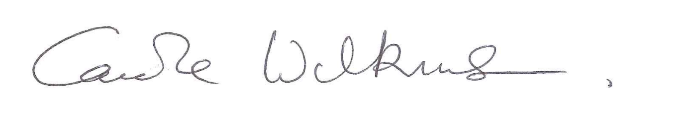 Carole Wilkinson